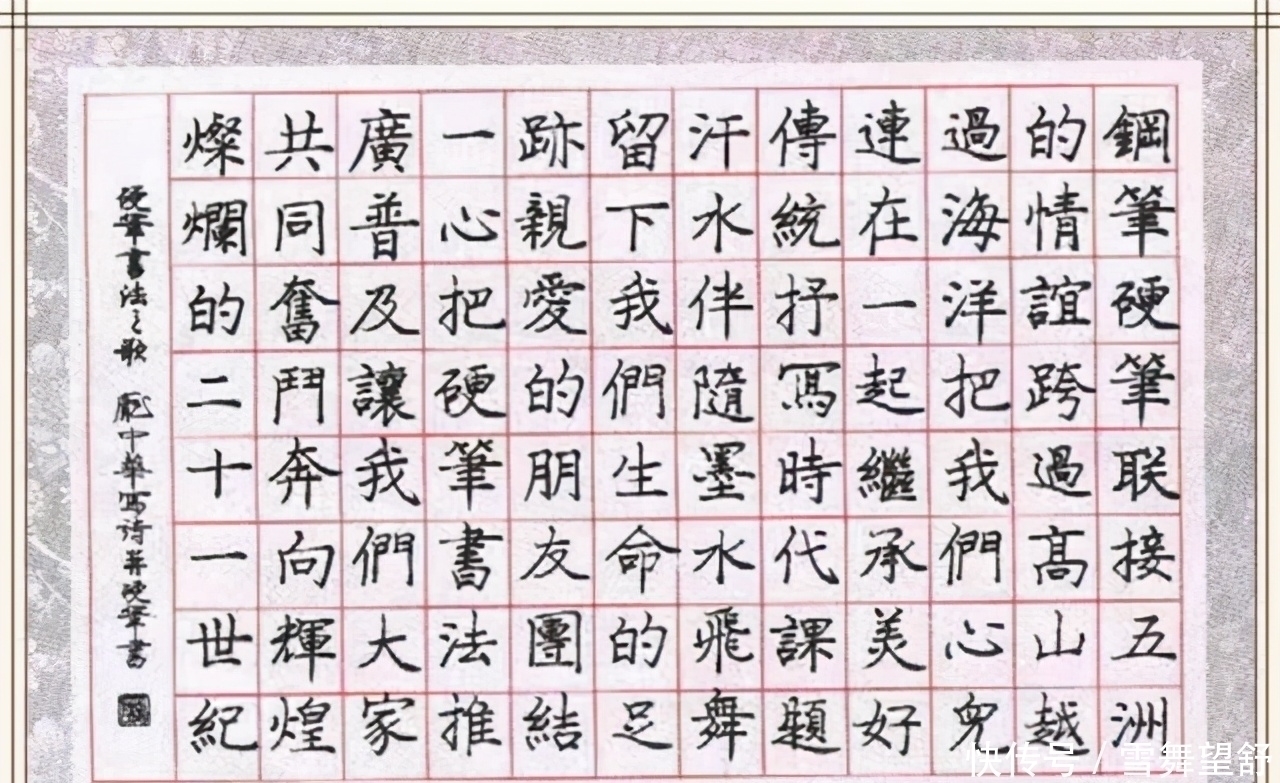 鋼筆硬筆联接五洲
的情誼跨過髙山越
過海洋把我們心皃
連在一起繼承美好
傳統抒寫時代課題
汗水伴隨墨水飛舞
留下我們生命的足
跡親愛的朋友團結
一心把硬筆書法推
廣普及讓我們大家
共同奮鬥奔向輝煌
燦爛的二十一世紀
硬筆書法之歌 龐中華寫诗并硬筆書
快传号 / 雪舞望舒